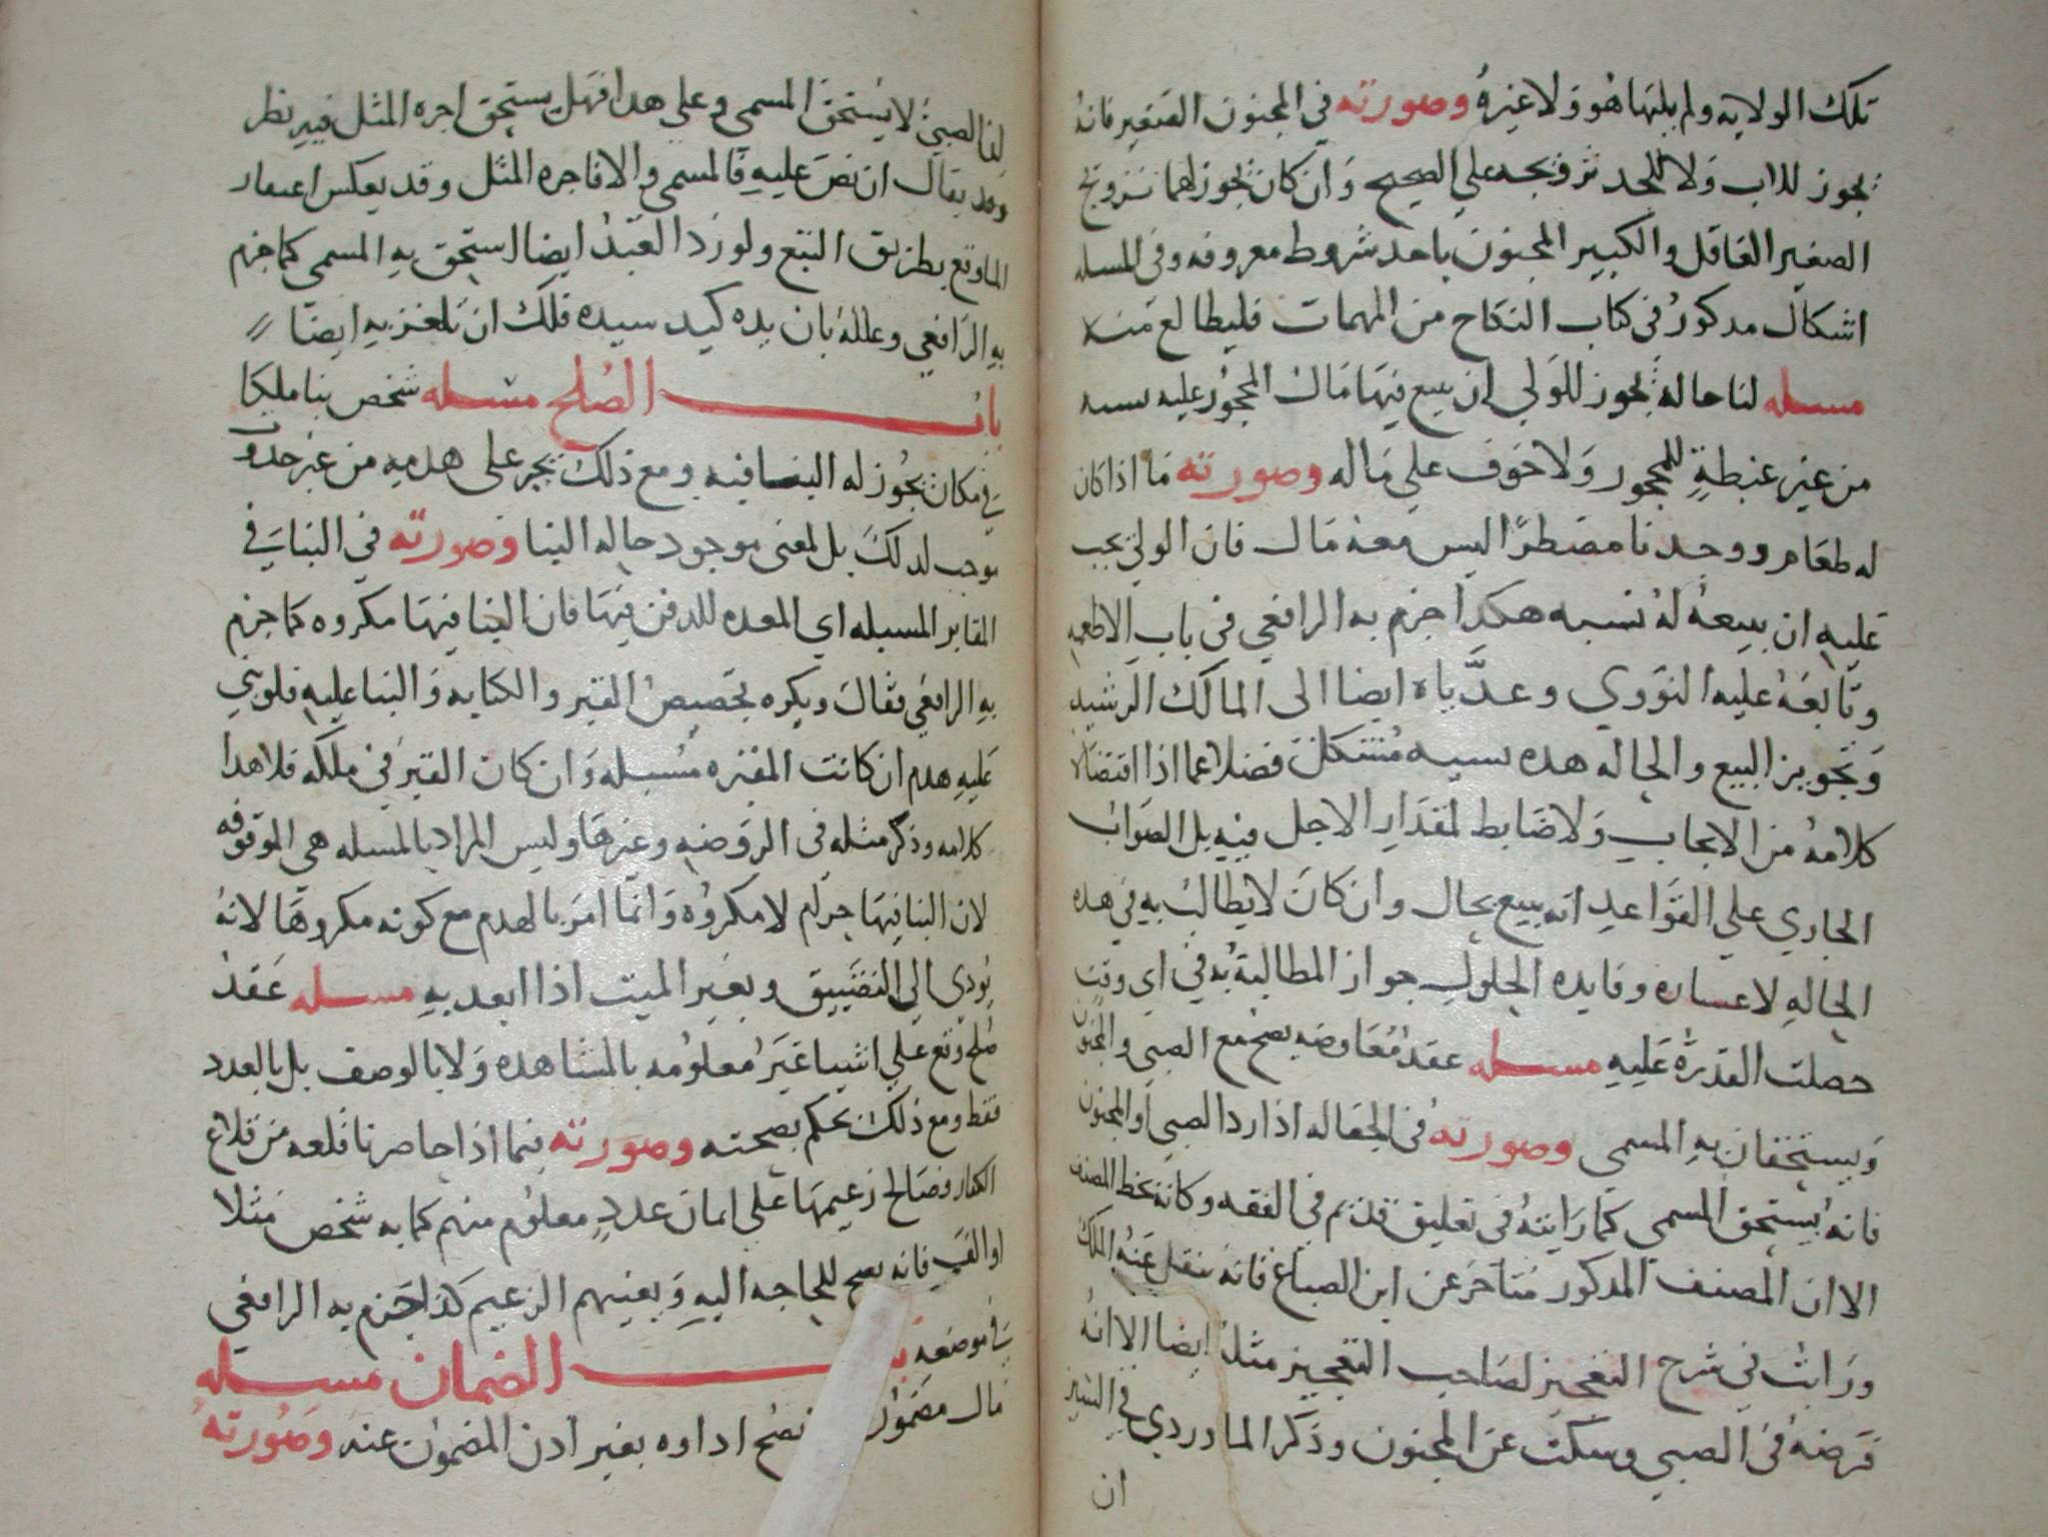 تلك الولايه ولم يلها هو ولا غيره وصورته في المجنون الصغير فانه
يجوز للاب ولا للجد تزويجه علي الصحيح وان كان يجوز لهما تزويج
الصغير العاقل والكبير المجنون باحد شروط معروفه وفي المسله
اشكال مدكور في كتاب النكاح من المهمات فليطالع منه
مسله لنا حاله يجوز للولي ان يبيع فيها مال المحجور عليه نسيه
من غير غبطة للمحجور ولا خوف علي ماله وصورته ما اذا كان
له طعام ووجدنا مضطرا ليس معه مال فان الولي يجب
عليه ان يبيعه له نسيه هكدا جزم به الرافعي في باب الاطعمه
وتابعه عليه النووي وعدياه ايضا الى المالك الرشيد
وتجويز البيع والحاله هده نسيه مشكل فضلا عما اذا اقتضاه
كلامه من الايجاب ولا ضابط لمقدار الاجل فيه بل الصواب
الجاري علي القواعد انه يبيع بحال وان كان لا يطالب به في هده
الحاله لاعساره وفايده الحلول جواز المطالبة به في اي وقت
حصلت القدرة عليه مسله عقد معاوضه يصح مع الصبي والمجنون
ويستحقان به المسمي وصورته في الجعاله اذا رد الصبي او المجنون
فانه يستحق المسمي كما رايته في تعليق قديم في الفقه وكانه بخط المصنف
الا ان المصنف المدكور متاخر عن ابن الصباغ فانه ينقل عنه الملك
ورايت في شرح التعجيز لصاحب التعجيز مثله ايضا الا انه
فرضه في الصبي وسكت عن المجنون وذكر الماوردي في السير
ان
لنا الصبي لا يستحق المسمي وعلي هدا فهل يستحق اجره المثل فيه نظر
وقد يقال ان نص عليه فالمسمي والا فاجره المثل وقد يعكس اعتبار
الما وقع بطريق التبع ولو رد العبد ايضا استحق به المسمي كما جزم
به الرافعي وعلله بان يده كيد سيده فلك ان تلغز به ايضا
باب الصلح مسله شخص بنا ملكا
في مكان يجوز له البنا فيه ومع ذلك يجبر على هدمه من غير حدوث
موجب لدلك بل لمعنى موجود حاله البنا وصورته في البنا في
المقابر المسبله اي المعده للدفن فيها فان البنا فيها مكروه كما جزم
به الرافعي فقال ويكره تجصيص القبر والكتابه والبنا عليه فلو بني
عليه هدم ان كانت المقبره مسبله وان كان القبر في ملكه فلا هدا
كلامه وذكر مثله في الروضه وغيرها وليس المراد بالمسبله هي الموقوفه
لان البنا فيها حرام لا مكروه وانما امر بالهدم مع كونه مكروها لانه
يودي الي التضييق وبغير الميت اذا ابعد به مسله عقد
صلح وقع علي اشيا غير معلومه بالمشاهده ولا بالوصف بل بالعدد
فقط ومع ذلك يحكم بصحته وصورته فيما اذا حاصرنا قلعه من قلاع
الكفار وصالح زعيمها علي امان عدد معلوم منهم كمايه شخص مثلا
او الف فانه يصح للحاجه اليه ويعينهم الزعيم كدا جزم به الرافعي
في موضعه باب الضمان مسله
مال مضمون يصح اداوه بغير ادن المضمون عنه وصورته